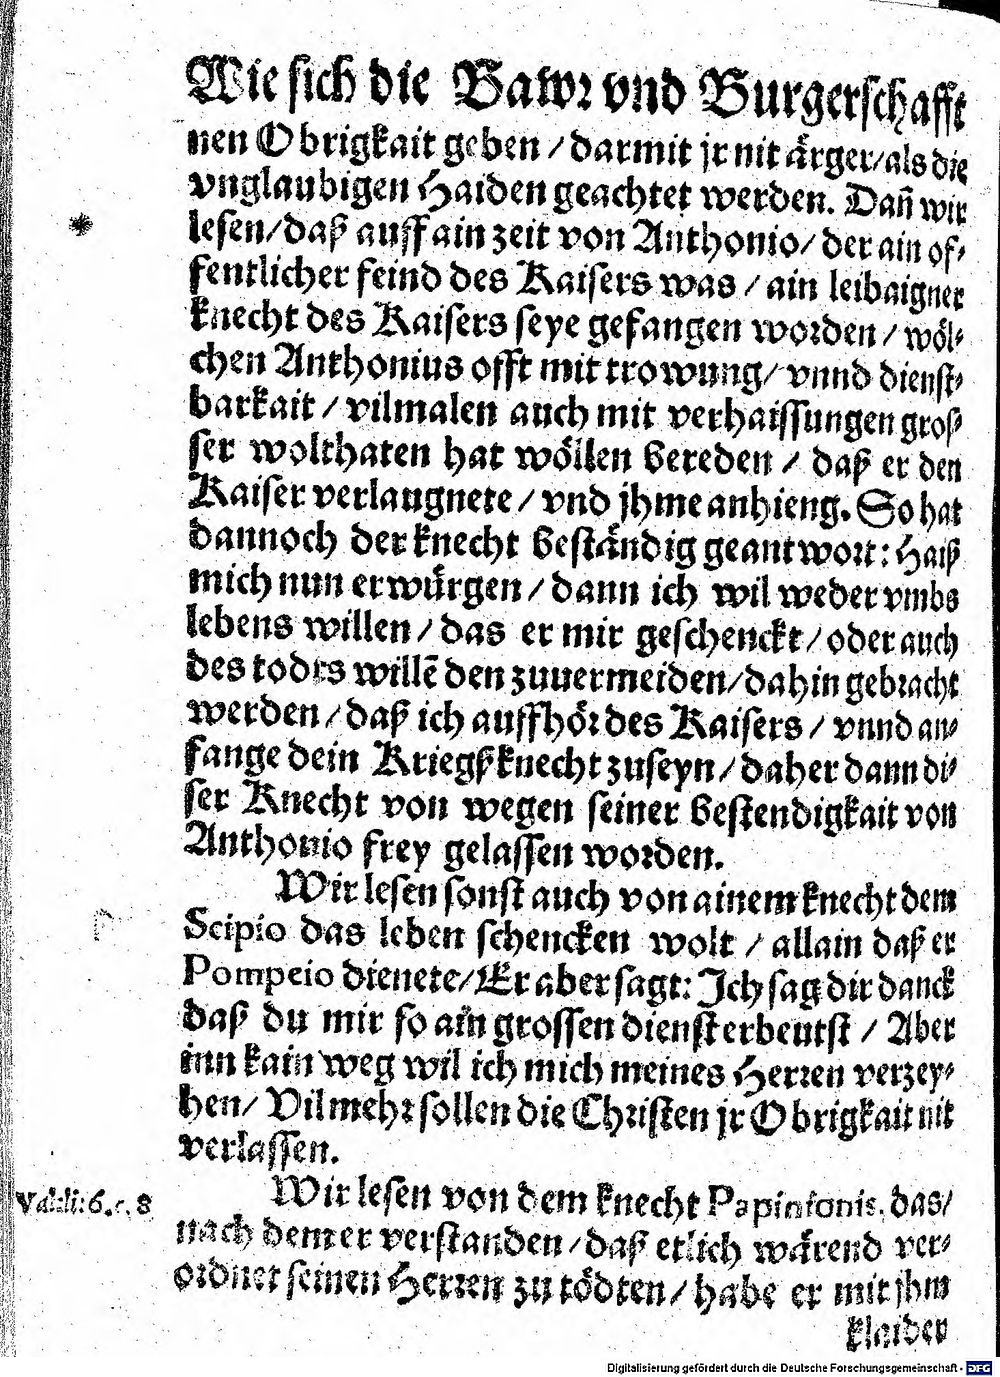 Wie sich die Bawr vnd Burgerschafft
nen Obrigkait geben / darmit jr nit ärger/als die
vnglaubigen Haiden geachtet werden. Dañ wir
lesen/daß auff ain zeit von Anthonio/ der ain of⸗
fentlicher feind des Kaisers was / ain leibaigner
knecht des Kaisers seye gefangen worden / wöl⸗
chen Anthonius offt mit trowung/ vnnd dienst⸗
barkait / vilmalen auch mit verhaissungen gros⸗
ser wolthaten hat wöllen bereden / daß er den
Kaiser verlaugnete / vnd jhme anhieng. So hat
dannoch der knecht beständig geantwort: Haiß
mich nun erwürgen / dann ich wil weder vmbs
lebens willen / das er mir geschenckt / oder auch
des todes willē den zuuermeiden/dahin gebracht
werden / daß ich auffhör des Kaisers / vnnd an⸗
fange dein Kriegßknecht zuseyn / daher dann di⸗
ser Knecht von wegen seiner bestendigkait von
Anthonio frey gelassen worden.
Wir lesen sonst auch von ainem knecht dem
Scipio das leben schencken wolt / allain daß er
Pompeio dienete/Er aber sagt: Ich sag dir danck
daß du mir so ain grossen dienst erbeutst / Aber
inn kain weg wil ich mich meines Herren verzey⸗
hen/ Vilmehr sollen die Christen jr Obrigkait nit
verlassen.
Wir lesen von dem knecht Papinionis, das/
6. c. 8
nach dem er verstanden / daß etlich wärend ver⸗
ordnet seinen Herren zu tödten / habe er mit jhm
klaider
Digitalisierung gefördert durch die Deutsche Forschungsgemeinschaft - DFG